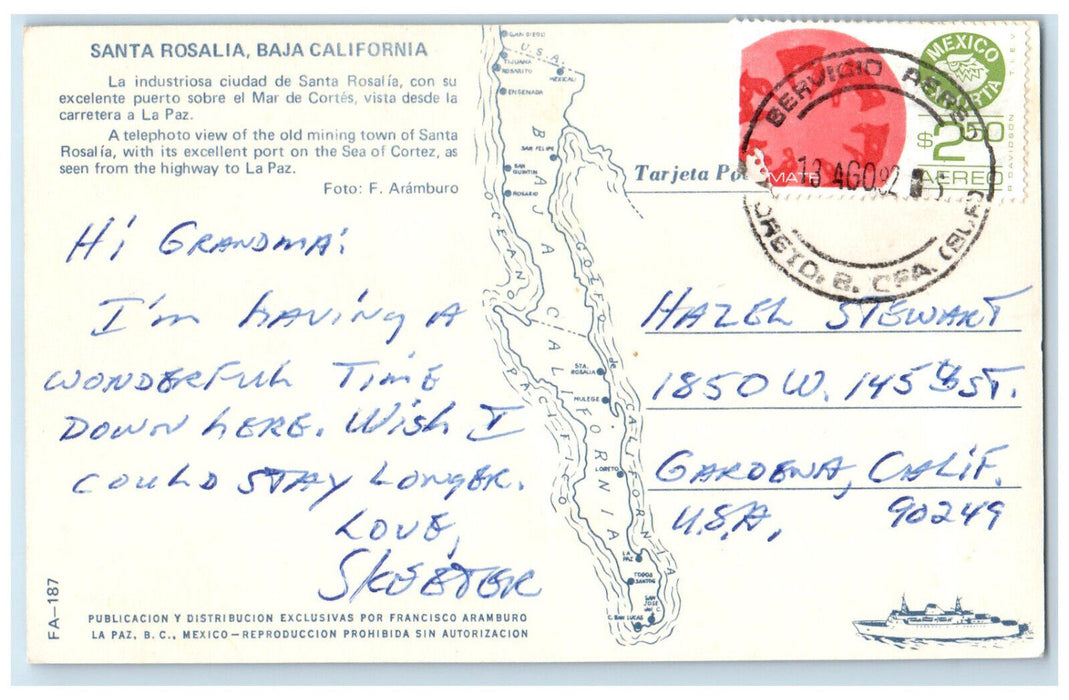 SANTA ROSALIA, BAJA CALIFORNIA
La industriosa ciudad de Santa Rosalía, con su
excelente puerto sobre el Mar de Cortés, vista desde la
carretera a La Paz.
A telephoto view of the old mining town of Santa
Rosalía, with its excellent port on the Sea of Cortez, as
seen from the highway to La Paz.
Foto: F. Arámburo
Hi GRANDMA:
I'm hAViNg A
WONDERFUL TIME
DOWN hERE. Wish I
COULD STAY LONGER.
LOVE,
SKEETER
FA-187
PUBLICACION Y DISTRIBUCION EXCLUSIVAS POR FRANCISCO ARAMBURO
LA PAZ, B. C., MEXICO—REPRODUCCION PROHIBIDA SIN AUTORIZACION
SAN DIEGO
U.S.A.
TIJUANA
ROSARITO
MEXICALI
ENSENADA
SAN FELIPE
SAN QUINTIN
ROSARIO
BAJA CALIFORNIA
OCEANO PACIFICO
GOLFO de CALIFORNIA
STA. ROSALIA
MULEGE
LORETO
LA PAZ
TODOS SANTOS
SAN JOSE del C.
C. SAN LUCAS
Tarjeta Po
MEXICO
$2.50
AEREO
T.I.E.V.
R. DAVIDSON
SERVICIO AEREO
13 AGO 82
LORETO, B. CFA. (SUR)
HAZEL STEWART
1850 W. 145th ST.
GARDENA, CALIF.
U.S.A, 90249